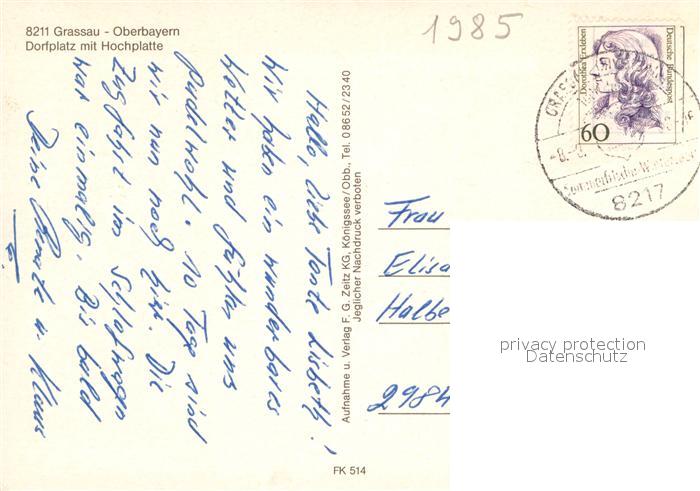 8211 Grassau - Oberbayern
Dorfplatz mit Hochplatte
1985
Dorothea Erxleben
Deutsche Bundespost
60
8217
Hallo, liebe Tante Lisbeth!
Wir haben ein wunderbares
Wetter und fühlen uns
pudelwohl. 10 Tage sind
wir nun noch hier. Die
Zugfahrt im Schlafwagen
war einmalig. Bis bald
Deine u. Klaus
Aufnahme u. Verlag F. G. Zeitz KG, Königssee/Obb., Tel. 08652/2340
Jeglicher Nachdruck verboten
Frau
Elisa
Halbe
2984
privacy protection
Datenschutz
FK 514